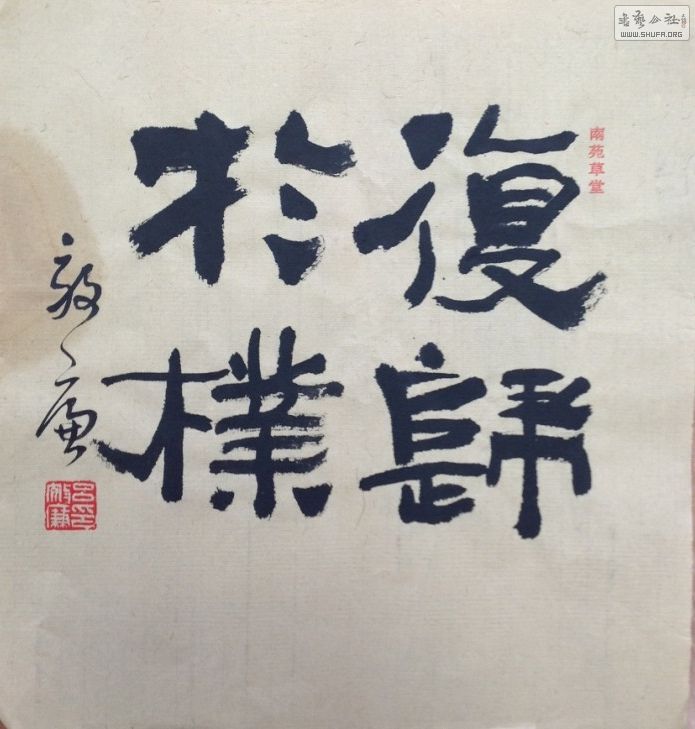 復歸
於樸
南苑草堂
書艺公社
WWW.SHUFA.ORG